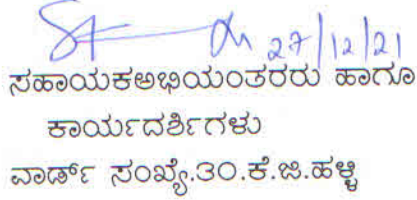 27/12/21
ಸಹಾಯಕಅಭಿಯಂತರರು ಹಾಗೂ
ಕಾರ್ಯದರ್ಶಿಗಳು
ವಾರ್ಡ್ ಸಂಖ್ಯೆ.30.ಕೆ.ಜಿ.ಹಳ್ಳಿ